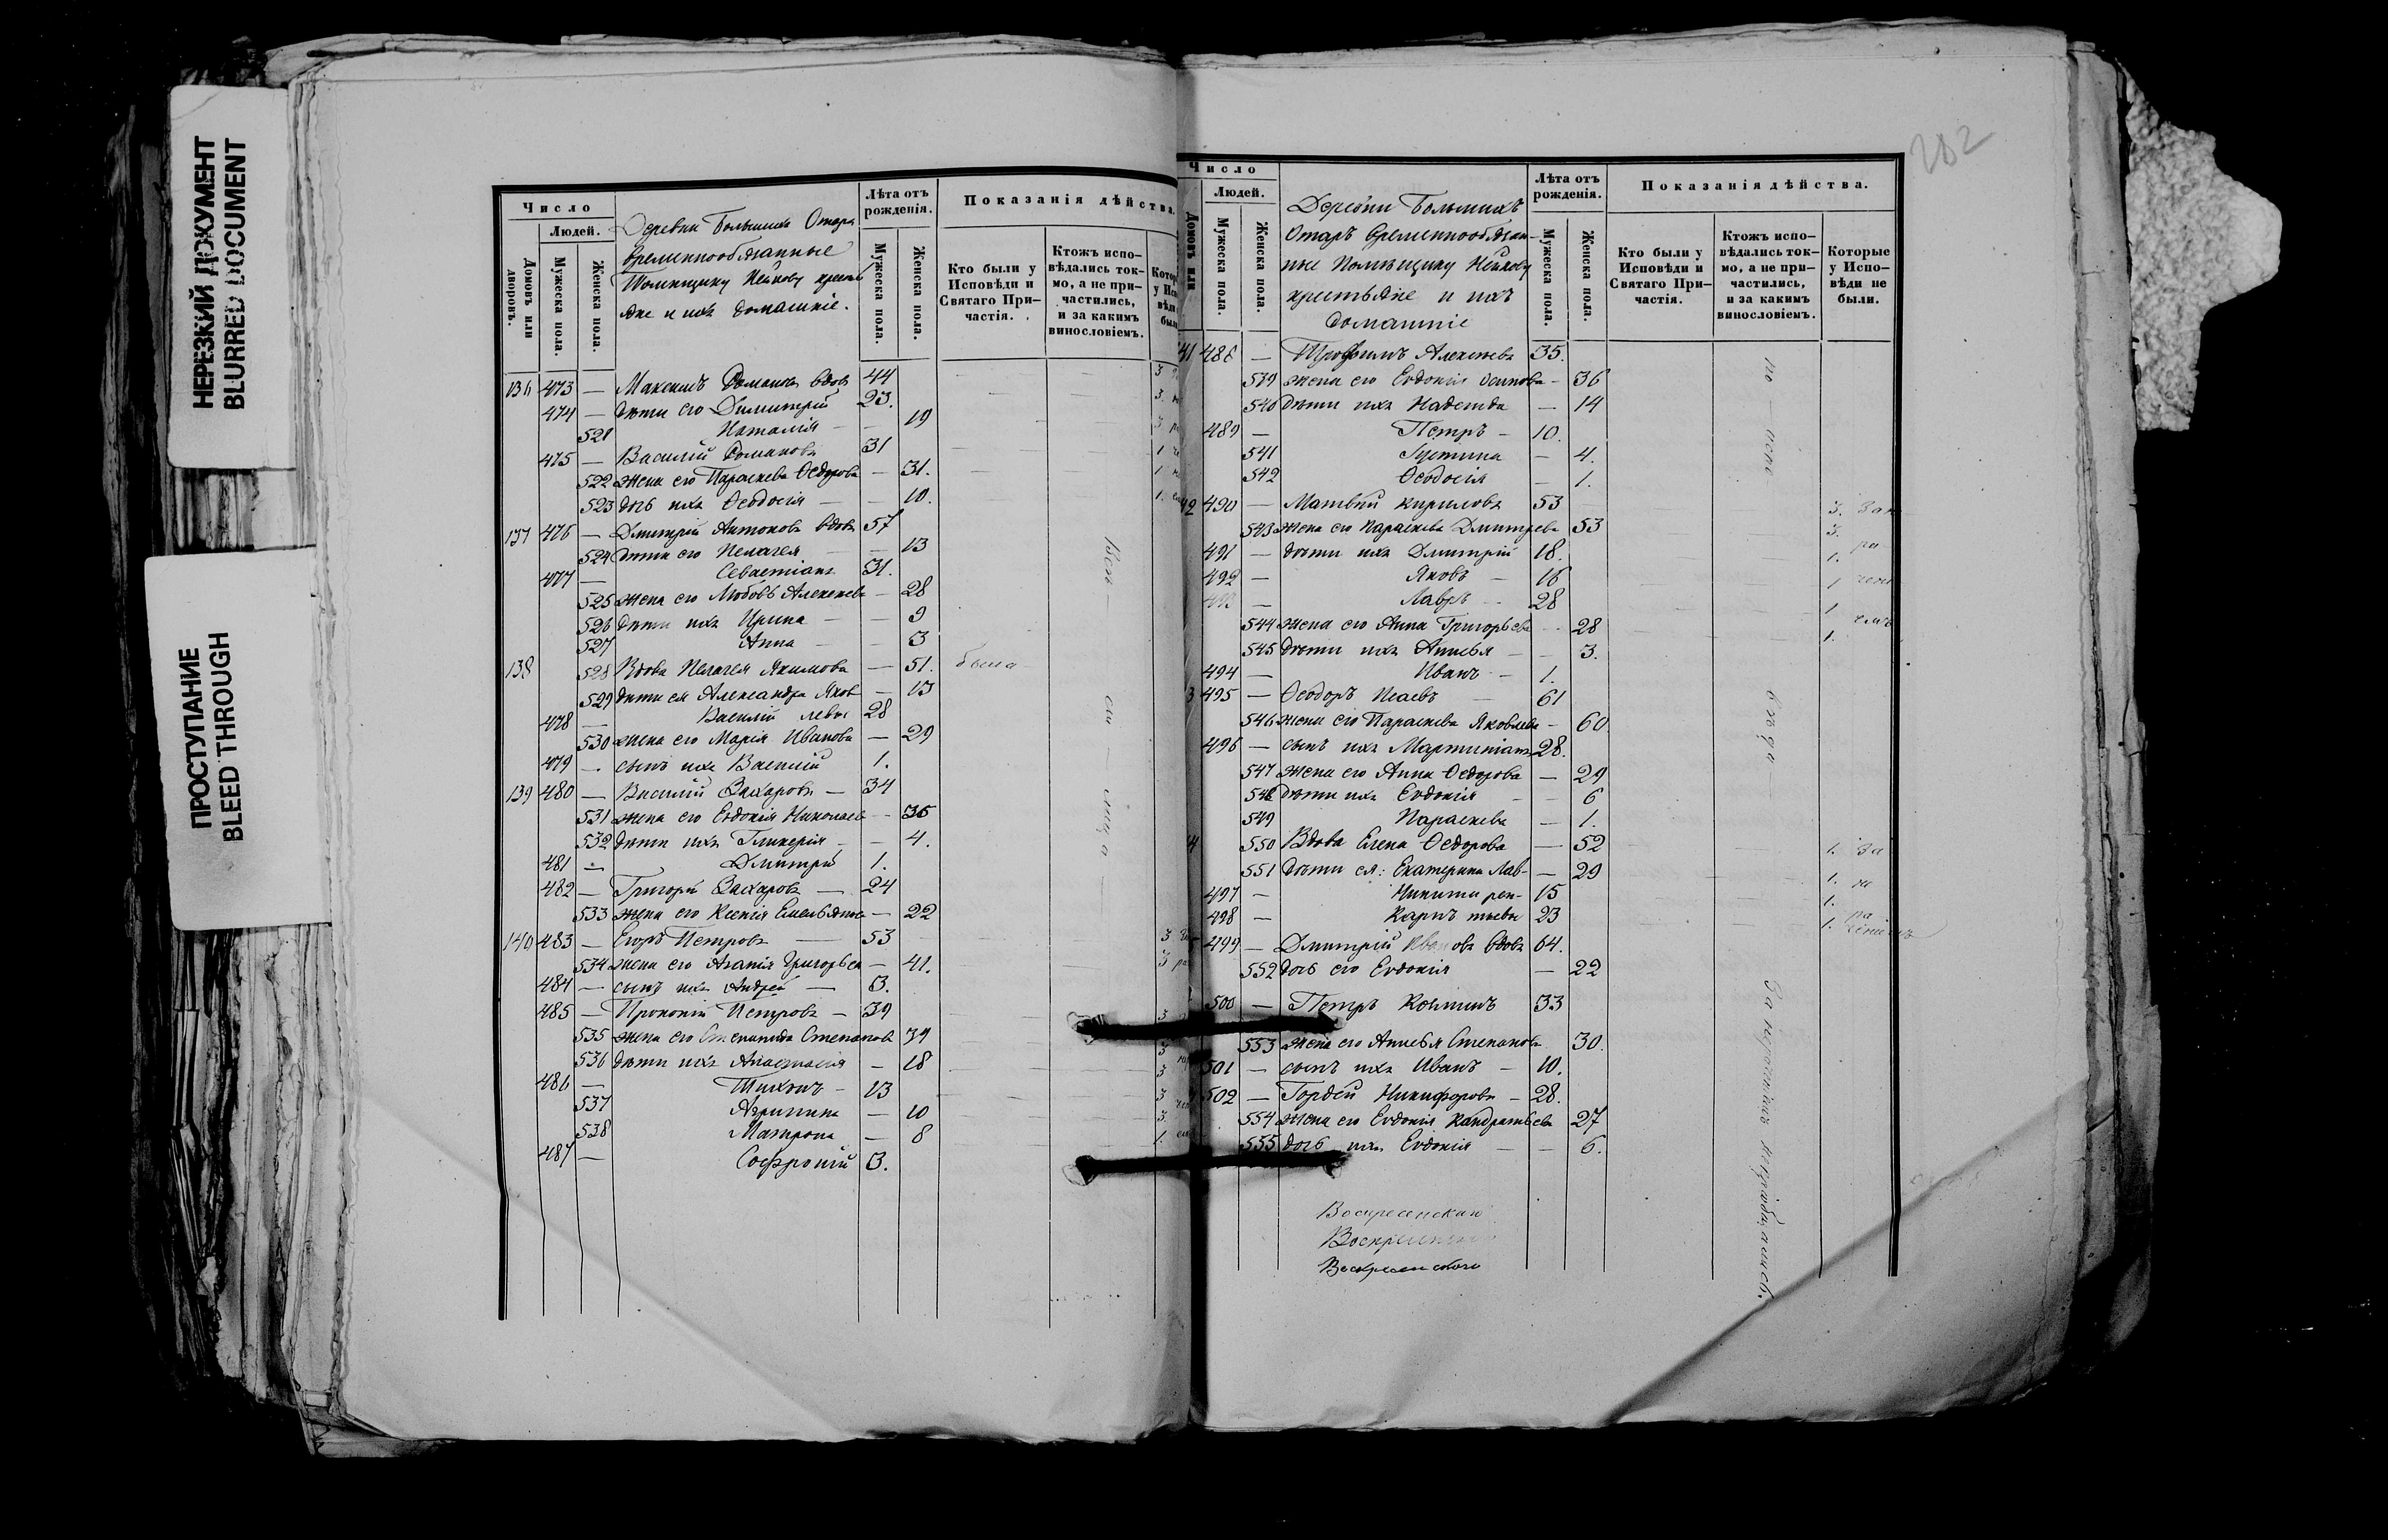 НЕРЕЗКИЙ ДОКУМЕНТ
BLURRED DOCUMENT
ПРОСТУПАНИЕ
BLEED THROUGH
Число
Людей.
Домовъ или дворовъ.
Мужеска пола.
Женска пола.
Деревни Большихъ Отаръ
временнообязанные
Помѣщику Нейкову кресть
яне и ихъ домашніе.
Лѣта отъ рожденія.
Мужеска пола.
Женска пола.
Показанія дѣйства.
Кто были у Исповѣди и Святаго Причастія.
Ктожъ исповѣдались токмо, а не причастились, и за какимъ винословіемъ.
136 473 — Максимъ Романовъ вдов 44
474 — дѣти его Димитрій 23.
521 Наталія — — 19
475 — Василій Романовъ 31
522 жена его Параскева Ѳедорова — 31.
523 дочь ихъ Ѳеодосія — — 10.
137 476 — Дмитрій Антоновъ вдовъ 57
524 дѣти его Пелагея — — 13
477 — Севастіанъ 31.
525 жена его Любовь Алексеева — 28
526 дѣти ихъ Ирина — — 9
527 Анна — — 3
138 528 Вдова Пелагея Якимова — 51. была
529 дѣти ея Александра Яков — 13
478 — Василій левы 28
530 жена его Марія Иванова — 29
479 — сынъ ихъ Василій 1.
139 480 — Василій Захаровъ — 34
531 жена его Евдокія Николаев — 35
532 дѣти ихъ Гликерія — — 4.
481 — Дмитрій 1.
482 — Григорій Захаровъ — 24
533 жена его Ксенія Емельянова — 22
140 483 — Егоръ Петровъ — 53
534 жена его Агапія Григорьев — 41.
484 — сынъ ихъ Андрей — 3.
485 — Прокопій Петровъ — 39
535 жена его Степанида Степанов 39
536 дѣти ихъ Анастасія — 18
486 — Тихонъ — 13
537 Агрипина — 10
538 Матрона — 8
487 — Софроній 3.
202
Число
Людей.
Домовъ или
Мужеска пола.
Женска пола.
Деревни Большихъ
Отаръ временнообязан-
ные Помѣщику Нейкову
крестьяне и ихъ
домашніе
Лѣта отъ рожденія.
Мужеска пола.
Женска пола.
Показанія дѣйства.
Кто были у Исповѣди и Святаго Причастія.
Ктожъ исповѣдались токмо, а не причастились, и за какимъ винословіемъ.
Которые у Исповѣди не были.
41 488 — Трофимъ Алексѣевъ 35.
539 жена его Евдокія Осипова — 36
540 дѣти ихъ Надежда — 14
489 — Петръ — 10.
541 Іустина — 4.
542 Ѳеодосія — 1.
42 490 — Матвѣй Кириловъ 53
543 жена его Параскева Дмитрева 53
491 — дѣти ихъ Дмитрій 18.
492 — Яковъ — 16
493 — Лавръ — 28
544 жена его Анна Григорьева — 28
545 дѣти ихъ Анисья — — 3.
494 — Иванъ — 1.
3 495 — Ѳеодоръ Исаевъ 61
546 жена его Параскева Яковлева — 60
496 — сынъ ихъ Мартиніанъ 28.
547 жена его Анна Ѳедорова — 29
548 дѣти ихъ Евдокія — — 6
549 Параскева — 1.
4 550 Вдова Елена Ѳедорова — 52
551 дѣти ея: Екатерина Лав- — 29
497 — Никита рен- 15
498 — Карпъ тьевы 23
499 — Дмитрій Ивановъ вдовъ 64.
552 дочь его Евдокія — 22
500 — Петръ Козминъ 33
553 жена его Анисья Степанова 30.
501 — сынъ ихъ Иванъ — 10.
502 — Гордѣй Никифоровъ — 28.
554 жена его Евдокія Кандратьева 27
555 дочь ихъ Евдокія — — 6.
За
Воскресенскаго